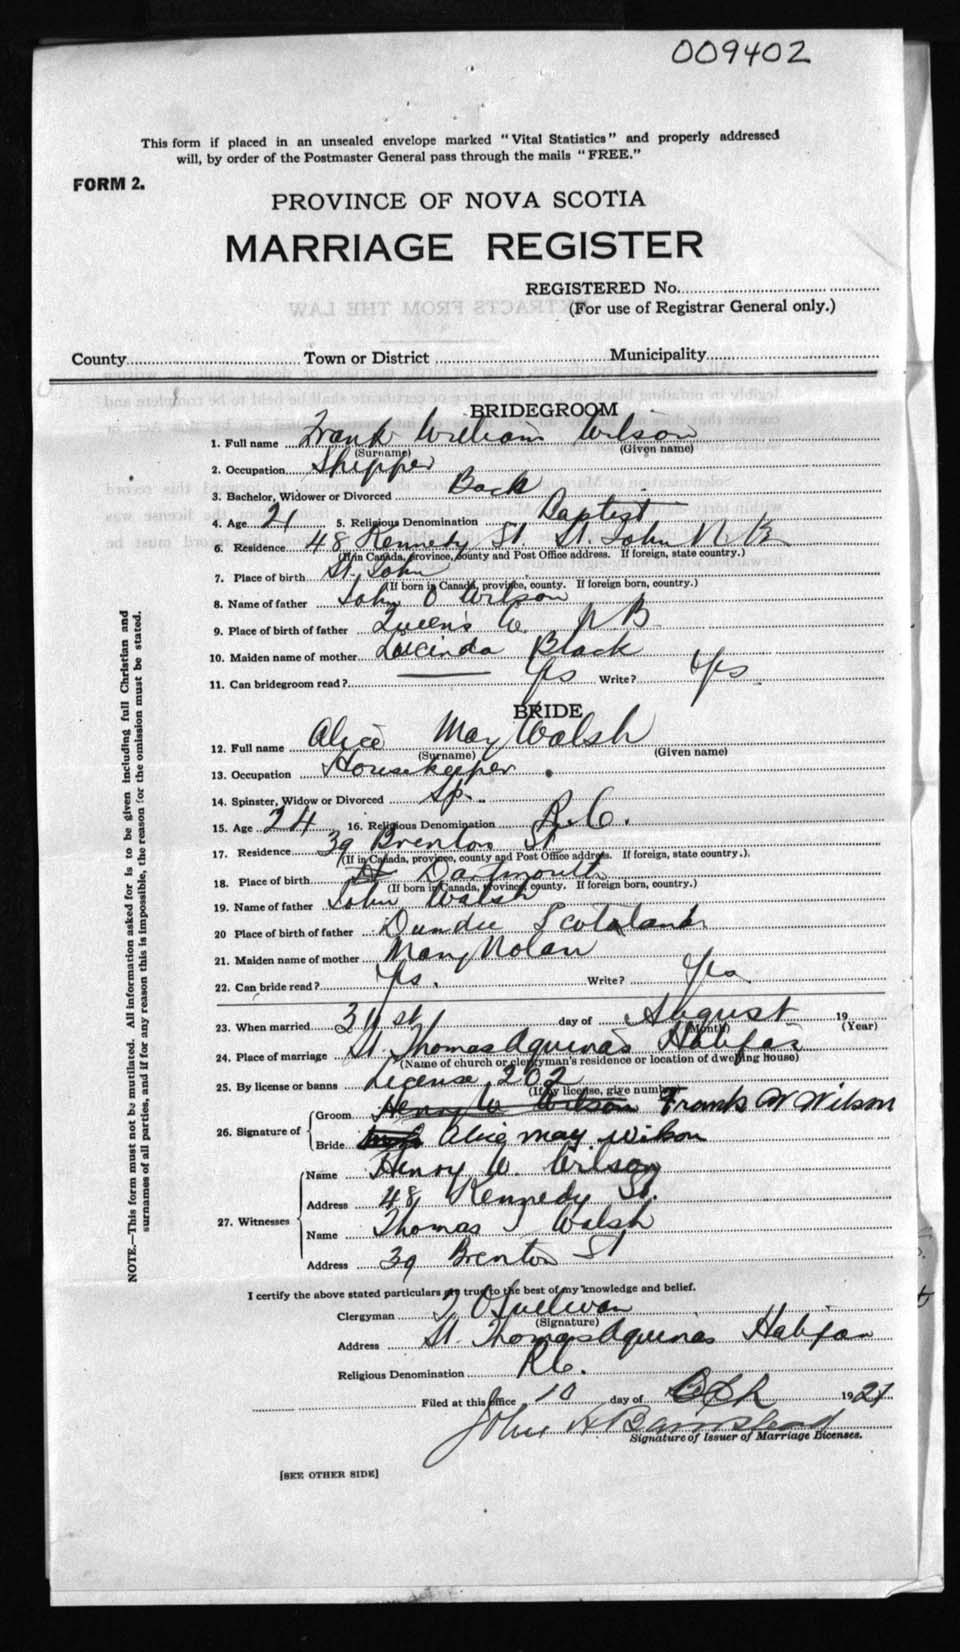 009402
This form if placed in an unsealed envelope marked "Vital Statistics" and properly addressed
will, by order of the Postmaster General pass through the mails "FREE."
FORM 2.
PROVINCE OF NOVA SCOTIA
MARRIAGE REGISTER
REGISTERED No.
(For use of Registrar General only.)
EXTRACTS FROM THE LAW
County Town or District Municipality
BRIDEGROOM
1. Full name Frank William Wilson
(Surname) (Given name)
2. Occupation Shipper
3. Bachelor, Widower or Divorced Bach
4. Age 21 5. Religious Denomination Baptist
6. Residence 48 Kennedy St. St. John N B
(If in Canada, province, county and Post Office address. If foreign, state country.)
7. Place of birth St. John
(If born in Canada, province, county. If foreign born, country.)
8. Name of father John O Wilson
9. Place of birth of father Queens Co. N B
10. Maiden name of mother Lucinda Black
11. Can bridegroom read? Yes Write? Yes
BRIDE
12. Full name Alice May Walsh
(Surname) (Given name)
13. Occupation Housekeeper
14. Spinster, Widow or Divorced Sp.
15. Age 24 16. Religious Denomination R.C.
17. Residence 39 Brenton St
(If in Canada, province, county and Post Office address. If foreign, state country.)
18. Place of birth Dartmouth
(If born in Canada, province, county. If foreign born, country.)
19. Name of father John Walsh
20 Place of birth of father Dundee Scotland
21. Maiden name of mother Mary Nolan
22. Can bride read? Yes. Write? Yes
23. When married 31st day of August 19
(Month) (Year)
24. Place of marriage St. Thomas Aquinas Halifax
(Name of church or clergyman's residence or location of dwelling house)
25. By license or banns License 202
(If by license, give number)
26. Signature of
Groom Henry W Wilson Frank W Wilson
Bride Alice May Wilson
27. Witnesses
Name Henry W. Wilson
Address 48 Kennedy St.
Name Thomas J Walsh
Address 39 Brenton St
I certify the above stated particulars are true to the best of my knowledge and belief.
Clergyman O'Sullivan
(Signature)
Address St. Thomas Aquinas Halifax
Religious Denomination R.C.
Filed at this office 10 day of 1921
John H Barnstead
Signature of Issuer of Marriage Licenses.
[SEE OTHER SIDE]
NOTE.—This form must not be mutilated. All information asked for is to be given including full Christian and
surnames of all parties, and if for any reason this is impossible, the reason for the omission must be stated.